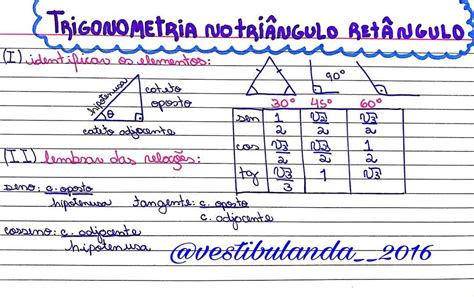 TRIGONOMETRIA NO TRIÂNGULO RETÂNGULO
(I) identificar os elementos:
hipotenusa
cateto
oposto
θ
cateto adjacente
90°
30° 45° 60°
sen 1/2 √2/2 √3/2
cos √3/2 √2/2 1/2
tg √3/3 1 √3
(II) lembrar das relações:
seno: c. oposto
hipotenusa
tangente: c. oposto
c. adjacente
cosseno: c. adjacente
hipotenusa
@vestibulanda__2016